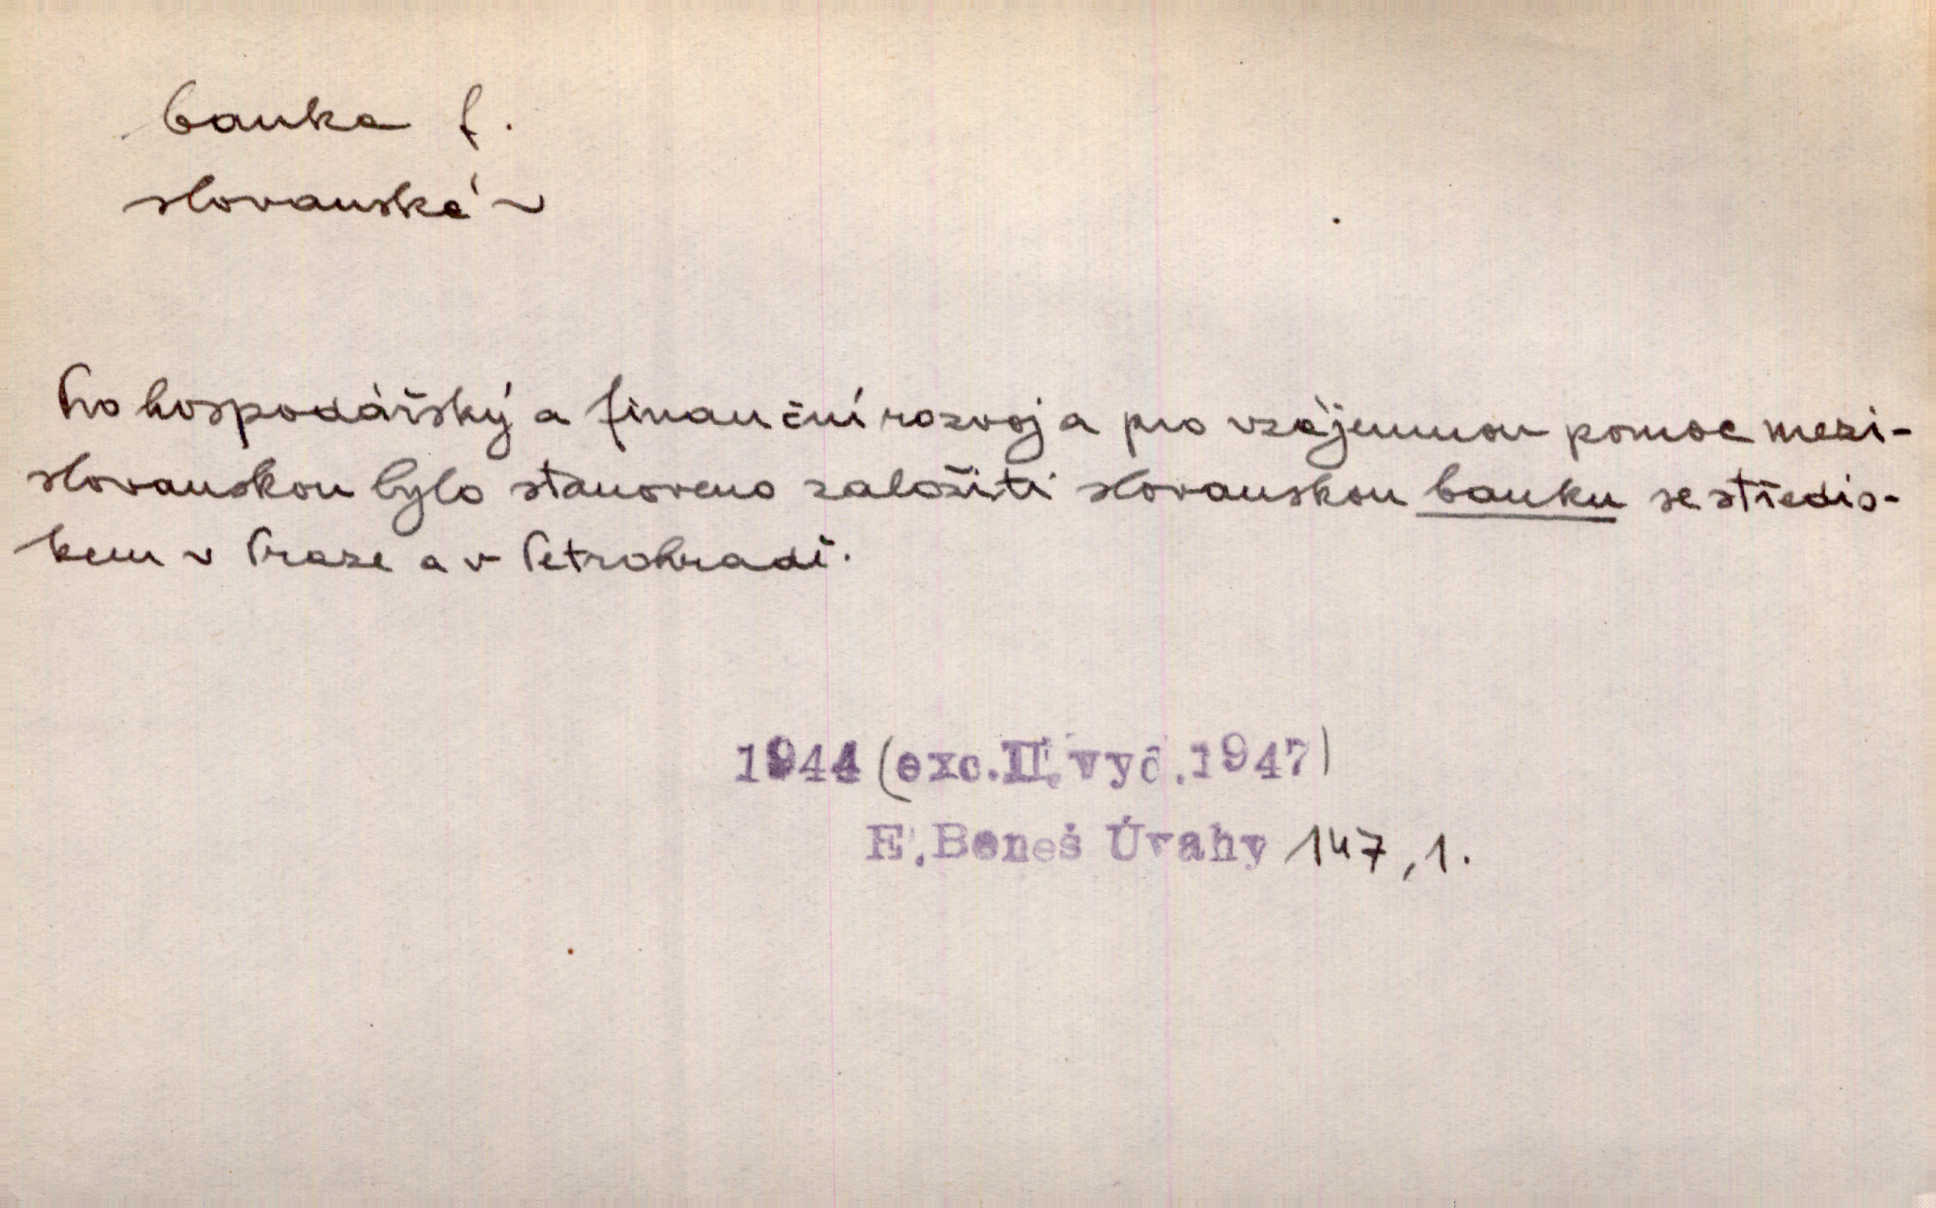 banka f.
slovanská ~
Pro hospodářský a finanční rozvoj a pro vzájemnou pomoc mezi-
slovanskou bylo stanoveno založiti slovanskou banku se středis-
kem v Praze a v Petrohradě.
1944 (exc. II. vyd. 1947)
E. Beneš Úvahy 147, 1.